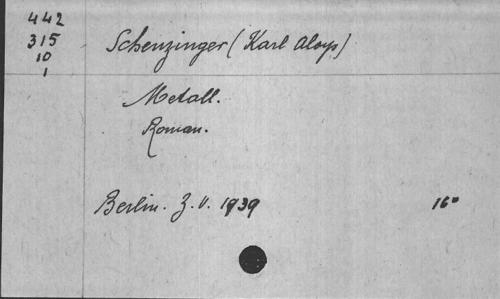 442
315
10
1
Schenzinger (Karl Aloys)
Metall.
Roman.
Berlin. Z. V. 1939 16°